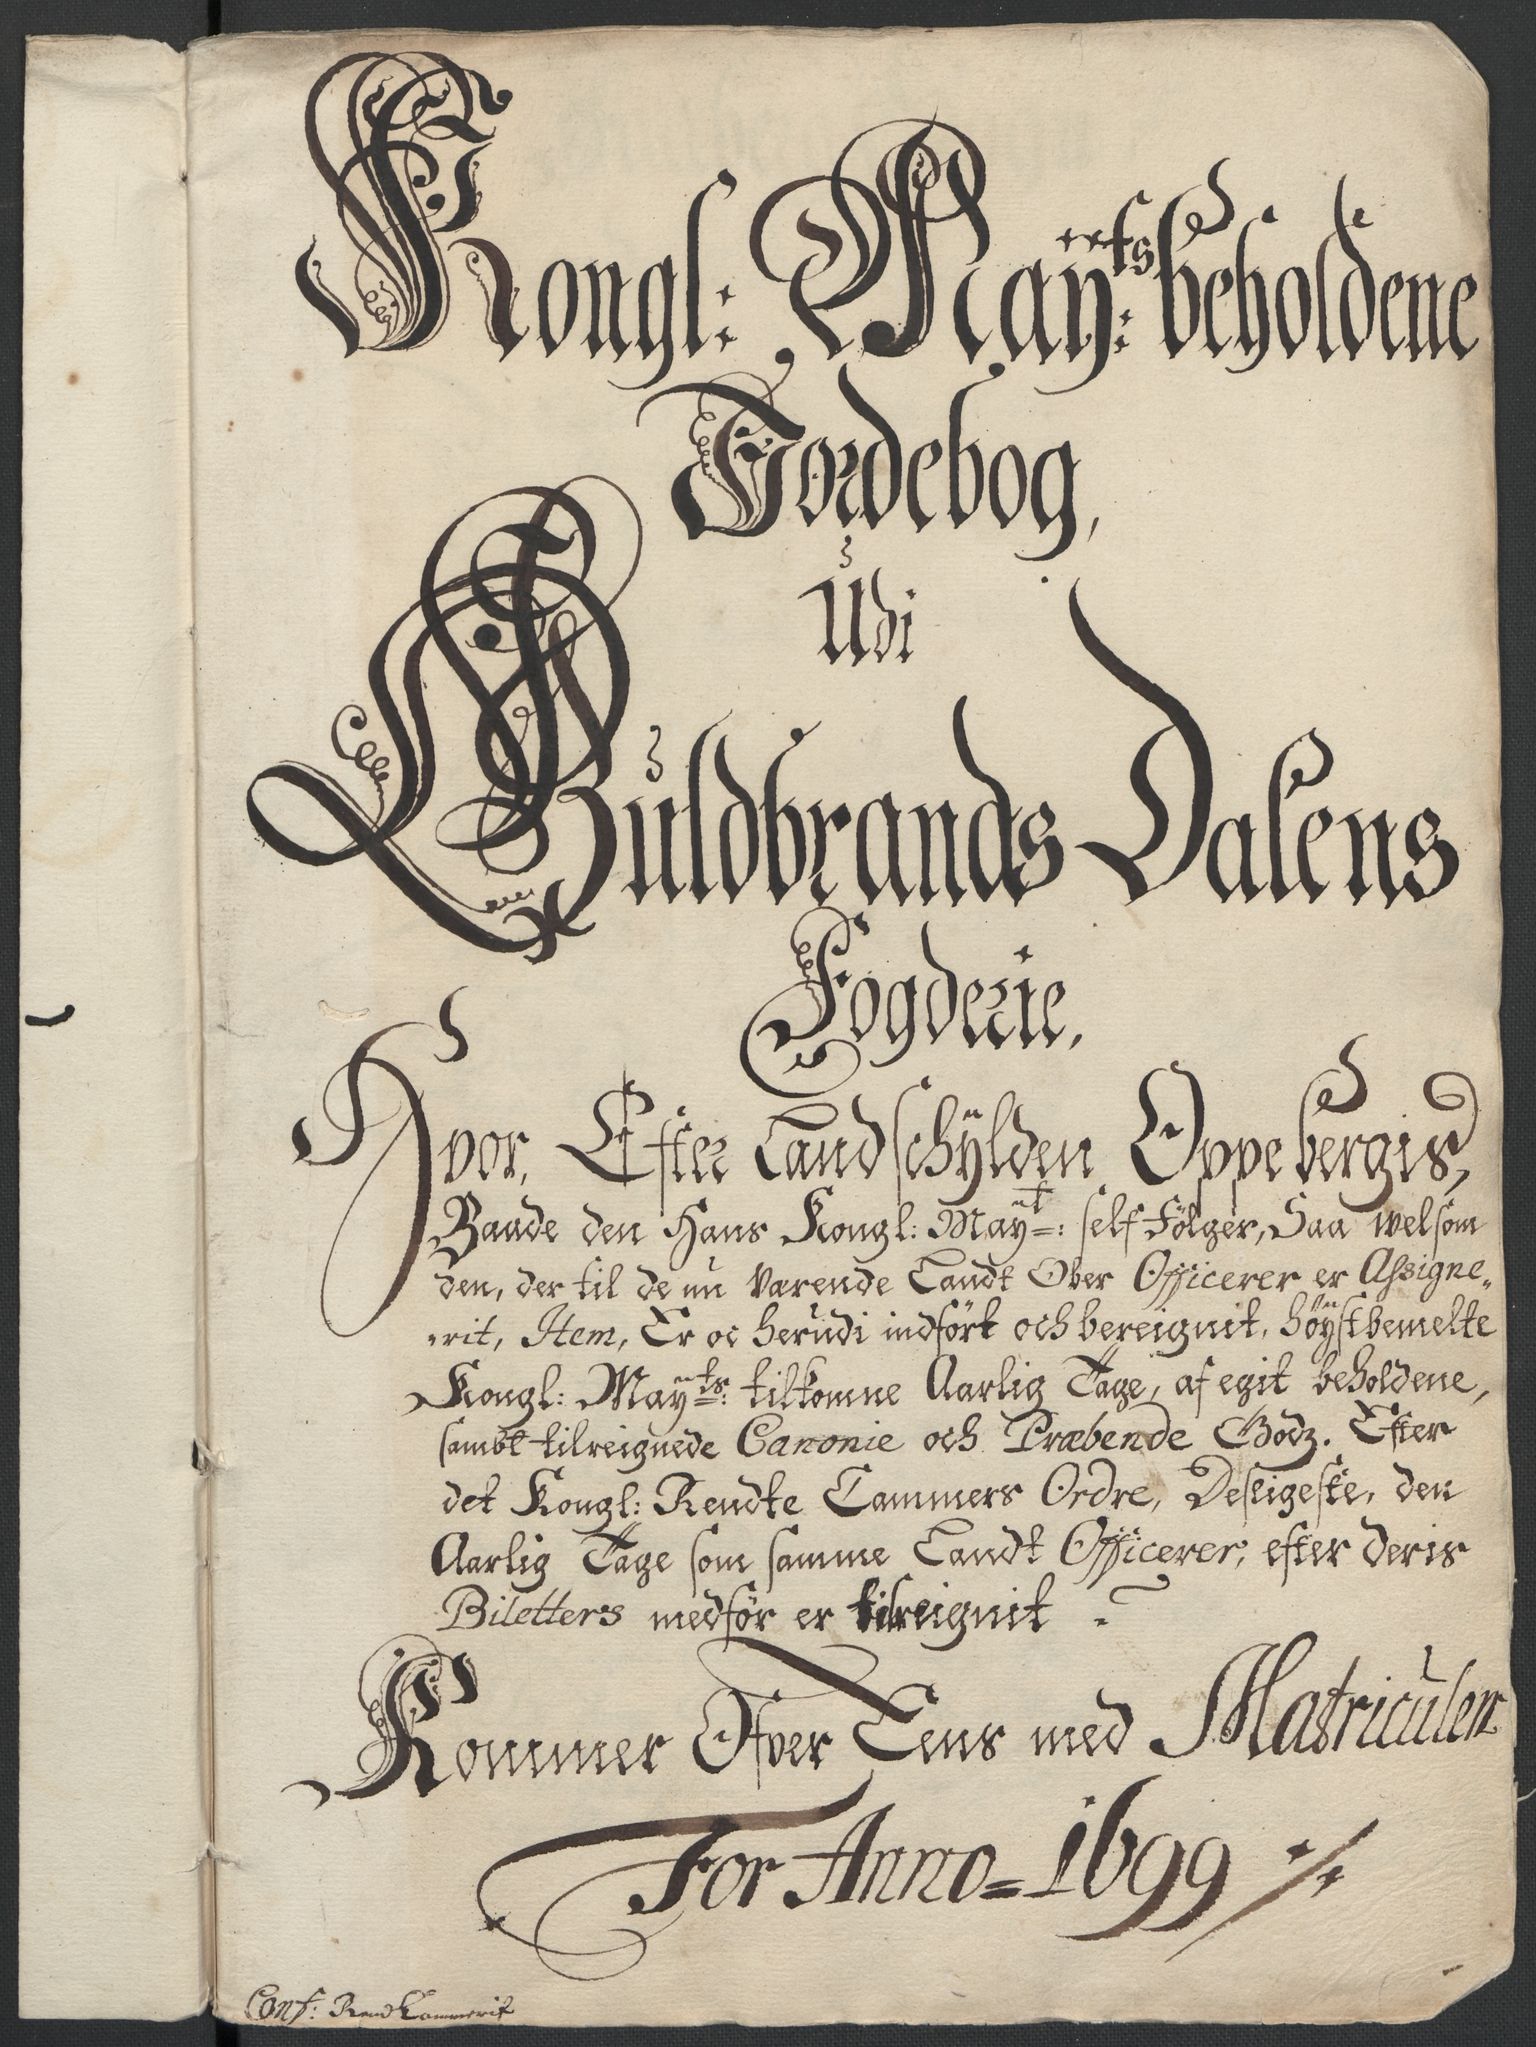 Kongl: Maÿ:ts beholdene
Jordebog,
Udi
Guldbrands Dalens
Fogderie,
Hvor, Efter Landschÿlden Oppebergis,
Baade den Hans Kongl: Maÿt: self følger, Saa velsom
den, der til de nu værende Landt Ober Officerer er Assigne-
rit, Item, Er oc herudi indført och bereignit, høÿstbemelte
Kongl: Maÿts: tilkomne Aarlig Tage, af egit beholdene,
sambt tilreignede Canonie och Præbende Godz. Efter
det Kongl: Rendte Cammers Ordre, Desligeste, den
Aarlig Tage som samme Landt Officerer, efter deris
Biletters medfør er tilreignit
Kommer Ofver Eens med Matriculen
For Anno=1699
Conf: Rend Kammerit